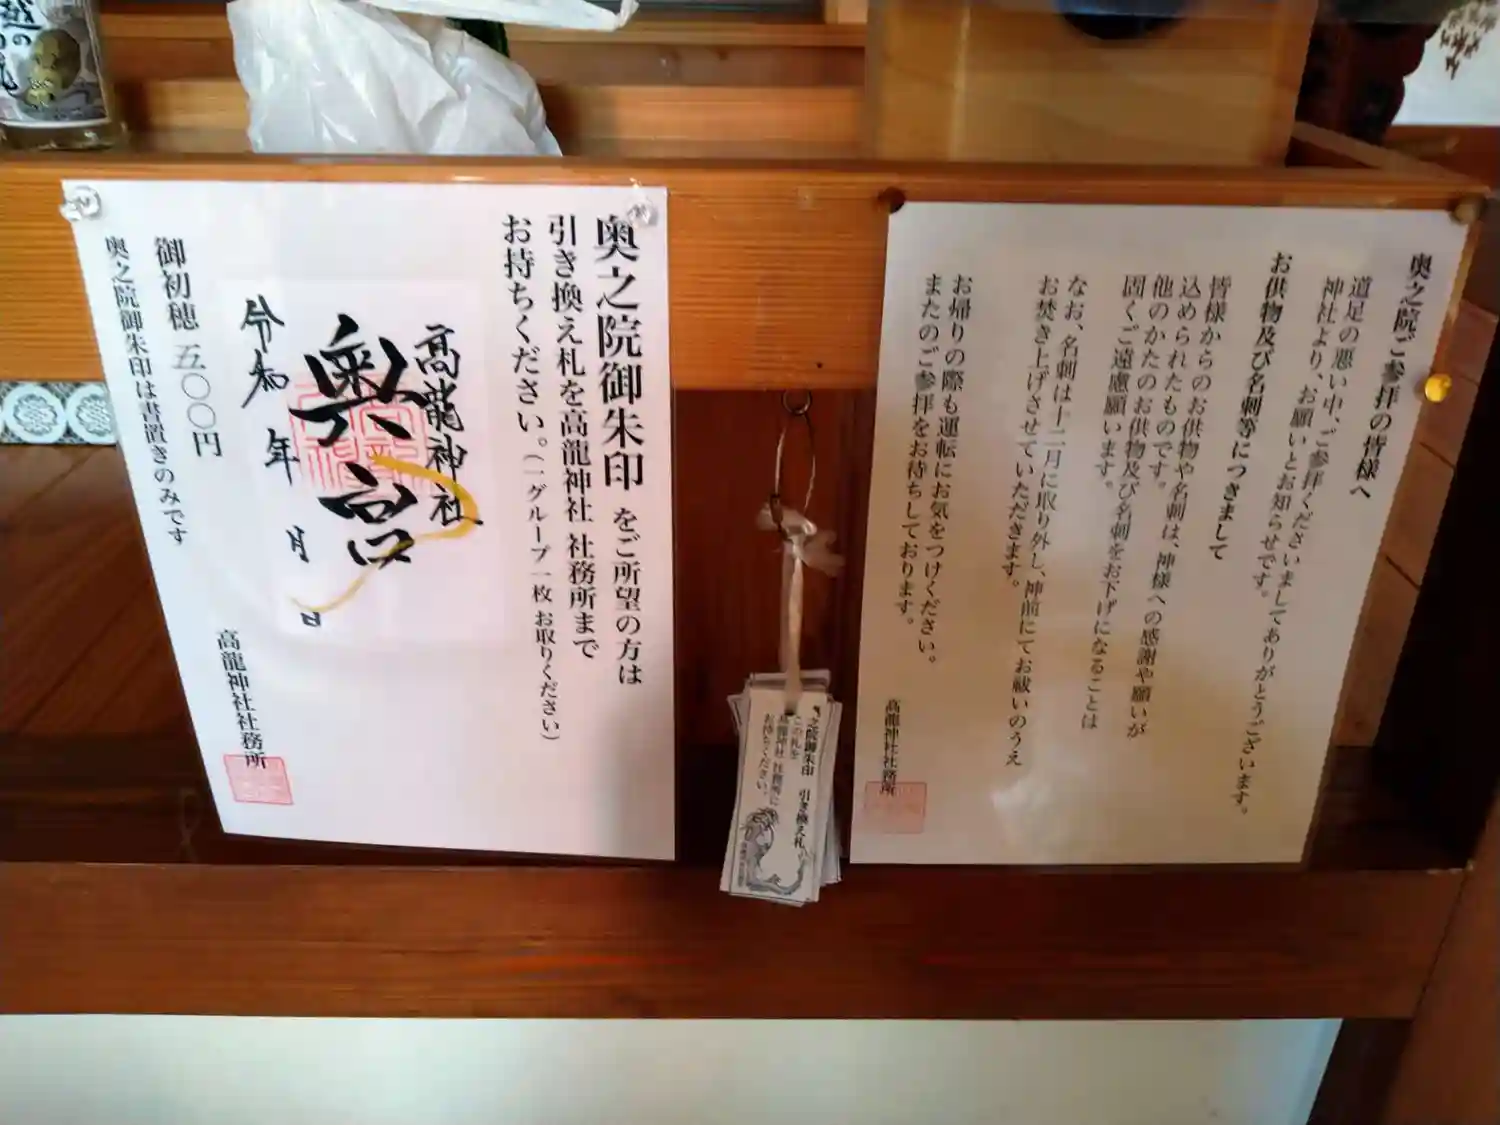 奥之院ご参拝の皆様へ
道足の悪い中、ご参拝くださいましてありがとうございます。
神社より、お願いとお知らせです。
お供物及び名刺等につきまして
皆様からのお供物や名刺は、神様への感謝や願いが
込められたものです。
他のかたのお供物及び名刺をお下げになることは
固くご遠慮願います。
なお、名刺は十二月に取り外し、神前にてお祓いのうえ
お焚き上げさせていただきます。
お帰りの際も運転にお気をつけください。
またのご参拝をお待ちしております。
高龍神社社務所
之院御朱印 引き換え札
この札を
高龍神社 社務所に
お持ちください。
奥之院御朱印をご所望の方は
引き換え札を高龍神社 社務所まで
お持ちください。(一グループ一枚 お取りください)
高龍神社
奥宮
令和 年 月 日
御初穂 五〇〇円
奥之院御朱印は書置きのみです
高龍神社社務所
越の